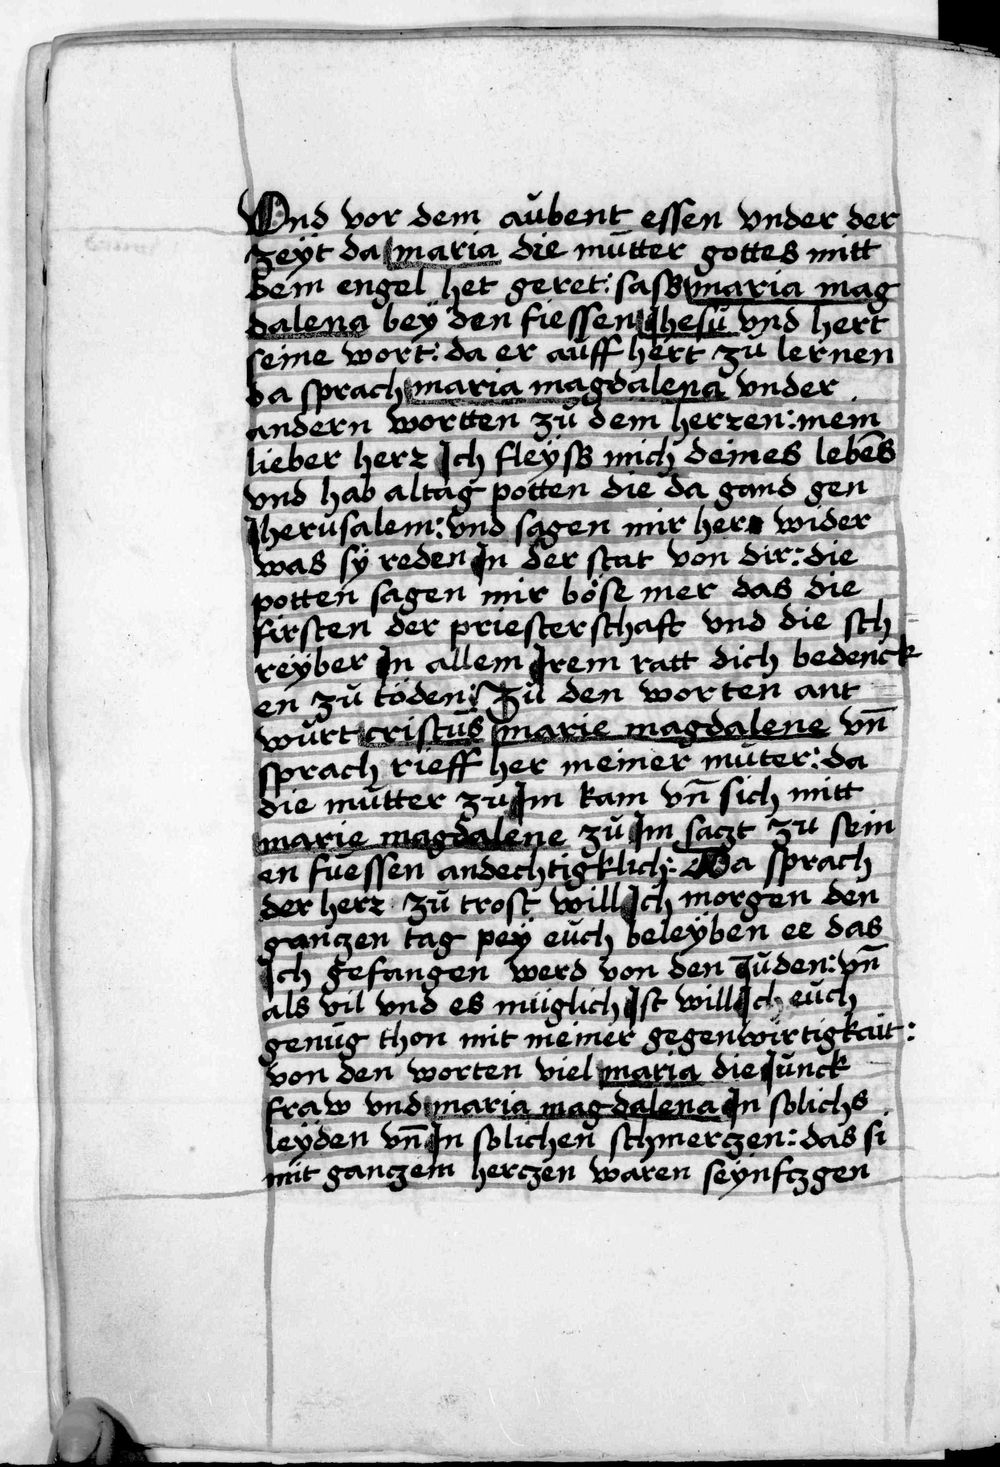 Vnd vor dem aŭbent essen vnder der
zeÿt da maria die mŭtter gottes mitt
dem engel het geret: sasß maria mag
dalena beÿ den fiessen Jhesŭ vnd hert
seine wort: da er aŭff hert zŭ lernen
da sprach maria magdalena vnder
andern wortten zŭ dem herzen: mein
lieber herz Ich fleÿsß mich deines lebēs
vnd hab altag potten die da gand gen
Jherusalem: vnd sagen mir her wider
was sÿ reden In der stat von dir: die
potten sagen mir böse mer das die
firsten der priesterschaft vnd die sch
reÿber In allem Irem ratt dich bedenck
en zŭ töden: Zŭ den worten ant
wŭrt cristŭs marie magdalene vn̄
sprach rieff her meiner mŭter: da
die mŭtter zŭ Im kam vn̄ sich mitt
marie magdalene zŭ Im saczt zŭ sein
en fŭessen andechtigklich: Da sprach
der herz zŭ trost will Ich morgen den
ganczen tag peÿ eŭch beleÿben ee das
Ich gefangen werd von den Jŭden: vn̄
als vil vnd es müglich Ist will Ich eŭch
genŭg thon mit meiner gegenwirtigkait:
von den worten viel maria die Jŭnck
fraw vnd maria magdalena In solichs
leÿden vn̄ In solichen schmerczen: das si
mit ganczem herczen waren seÿnftzgen